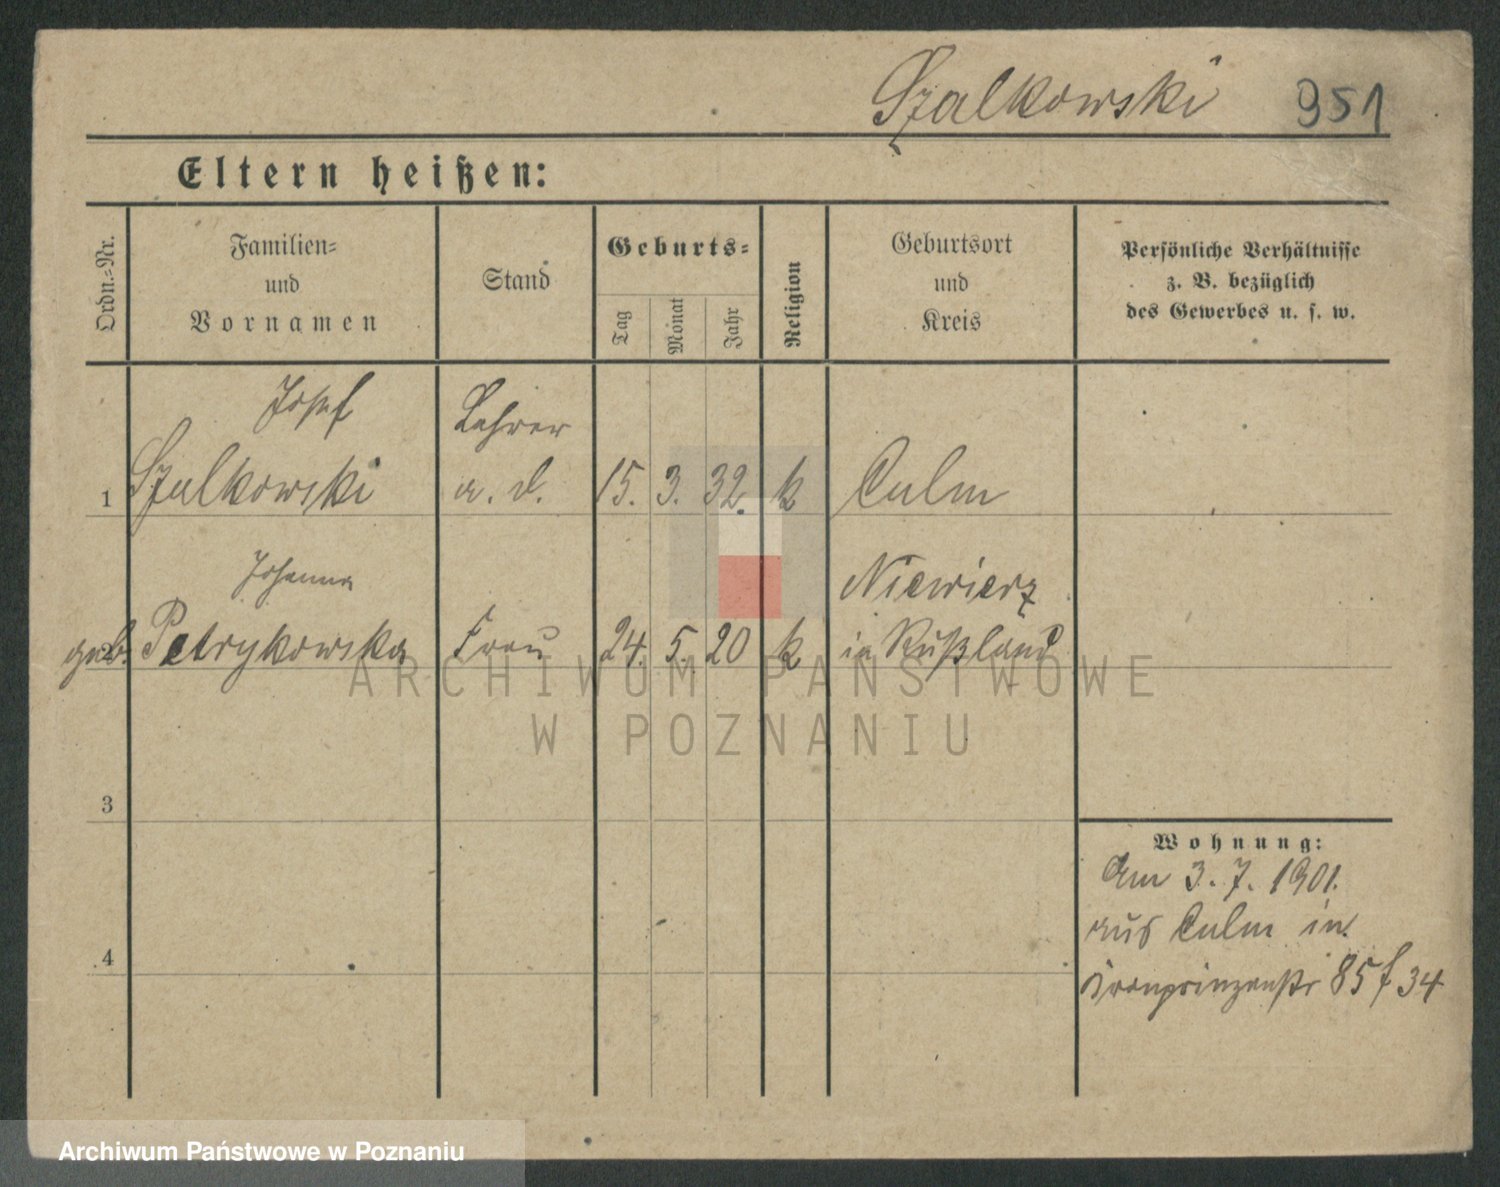 Szalkowski 951
Eltern heißen:
Ordn.=Nr.
Familien=
und
Vornamen
Stand
Geburts=
Tag
Monat
Jahr
Religion
Geburtsort
und
Kreis
Persönliche Verhältnisse
z. B. bezüglich
des Gewerbes u. s. w.
Josef
Lehrer
1 Szalkowski a. D. 15. 3. 32. k Culm
Johanna
Niewierz
geb. Petrykowska Frau 24. 5. 20 k in Rußland
ARCHIWUM PAŃSTWOWE
W POZNANIU
3
Wohnung:
Am 3. 7. 1901.
aus Culm in
4
Kronprinzenstr 85 f 34
Archiwum Państwowe w Poznaniu